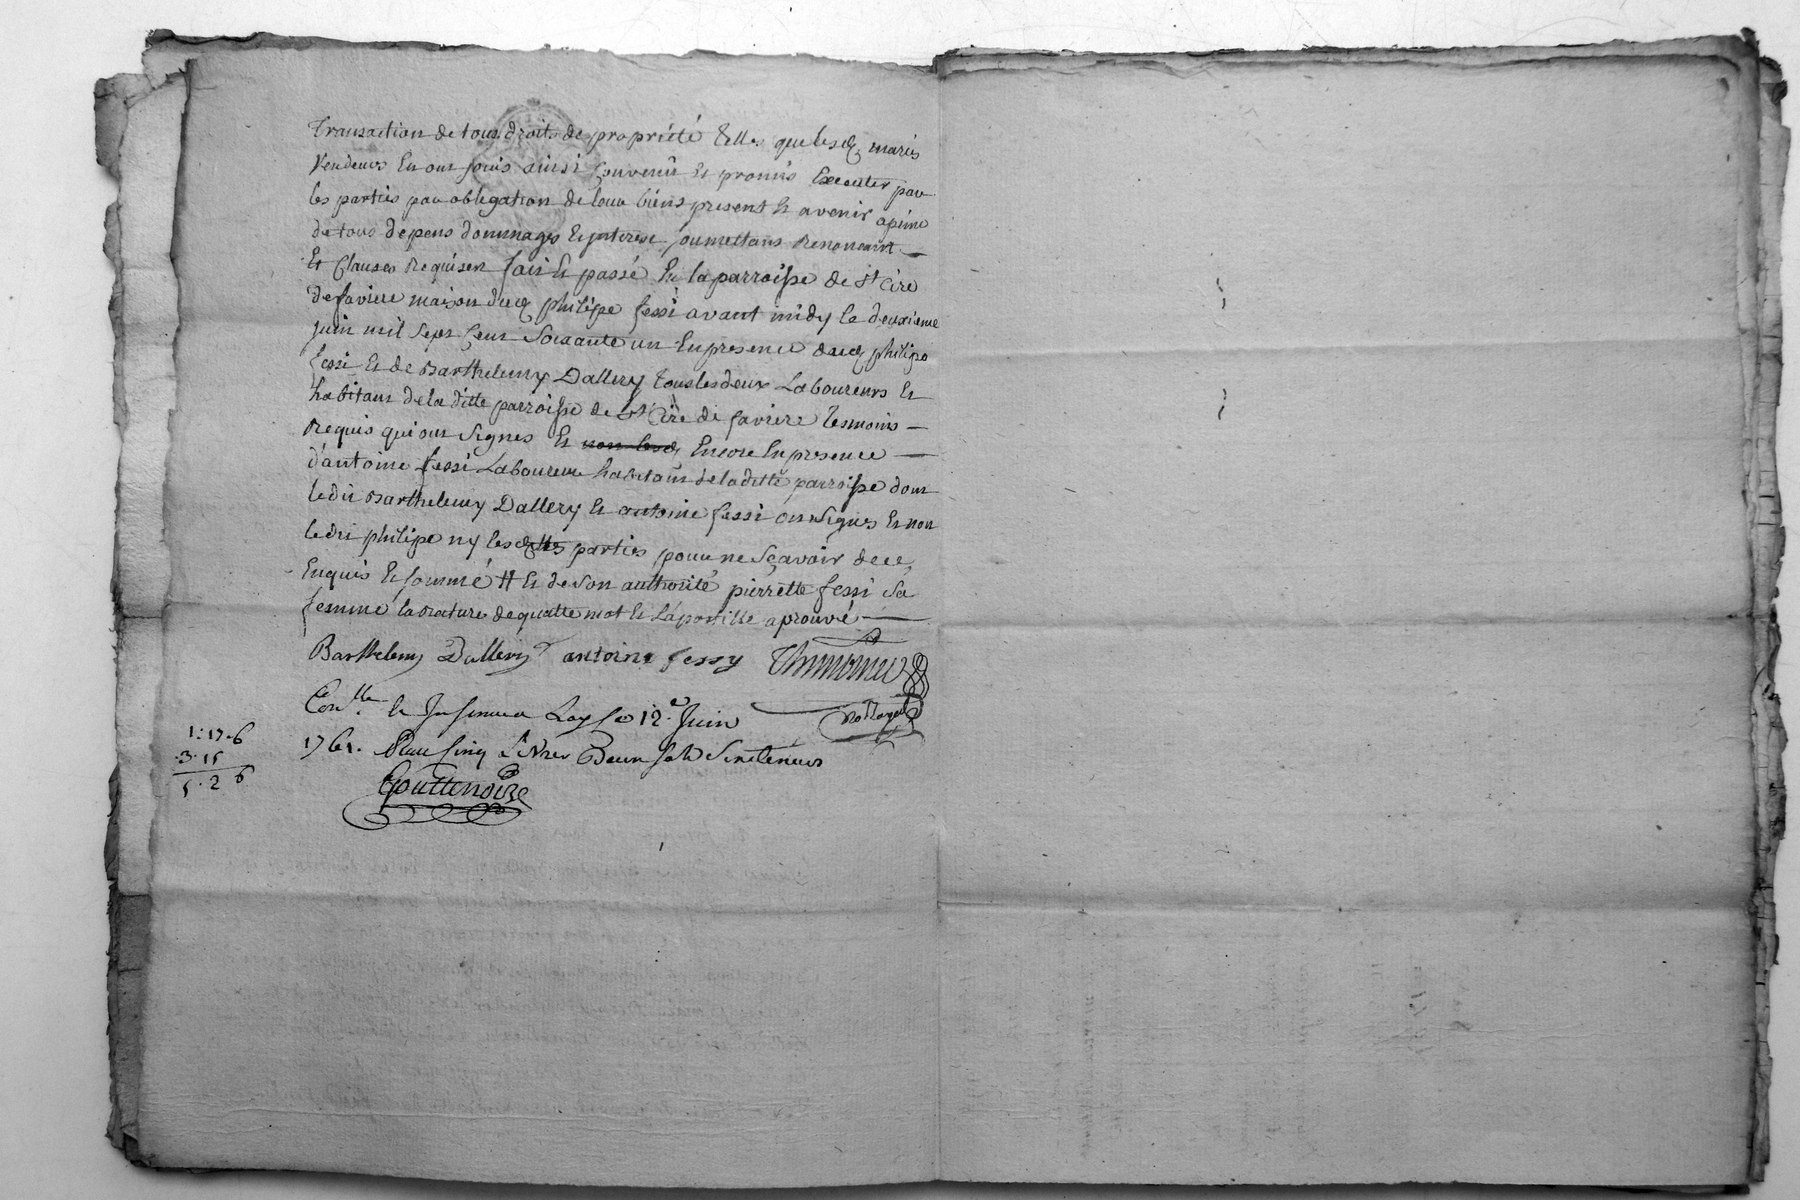 Transaction de tous droits de propriété telles que lesd. mariés
Vendeurs En ont jouis ainsi Convenû Et promis Executer par
les parties par obligation de leur biens present Et avenir apeine
de tous depens dommages Et interest soumettans Renoncant
Et Clauses Requisen fait Et passé En la parroisse de st Cire
de faviere maison dud philipe fessi avant midy le deuxieme
juin mil sept Cent Soixante un En presence dud philipe
fessi Et de Barthelemy Dallery tous les deux Laboureurs Et
habitant de la ditte parroisse de st Cire de faviere temoins
Requis qui ont signes Et non lesd Encore En presence
d'antoine fessi Laboureur habitant de la ditte parroisse dont
ledit Barthelemy Dallery Et antoine fessi ont signes Et non
ledit philipe ny lesdttes parties pour ne sçavoir de ce
Enquis Et sommé # Et de son authorité pierrette fessi sa
femme la rature de quatte mot Et L'apostille aprouvé
Barthelemy Dallery antoine fessy Thimonier
Notaire
Conlle Et Insinué a Lay le 12e Juin
1761. Reçu cinq Livres Deux sols six deniers
Gouttenoire
1:17.6
3.15
5.2 6